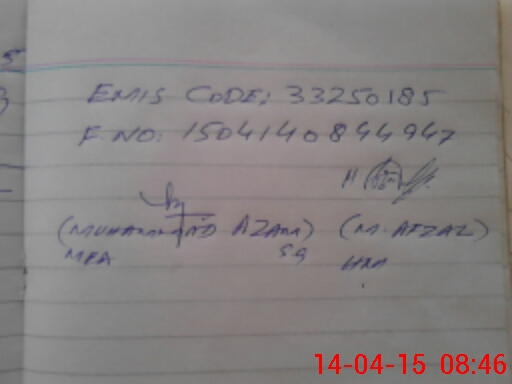 EMIS CODE: 33250185
F.NO: 150414084494​7
(MUHAMMAD AZAM) (M. AFZAL)
MEA HM
14-04-15 08:46